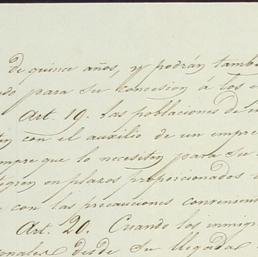 de quince años, y podrán tambi
do para su concesion á los e
Art. 19. Las poblaciones de in
con el auxilio de un empre
mpre que lo necesiten para su
tegren en plazos proporcionados
con las precauciones convenien
Art. 20. Cuando los inmig
ionales desde su llegada